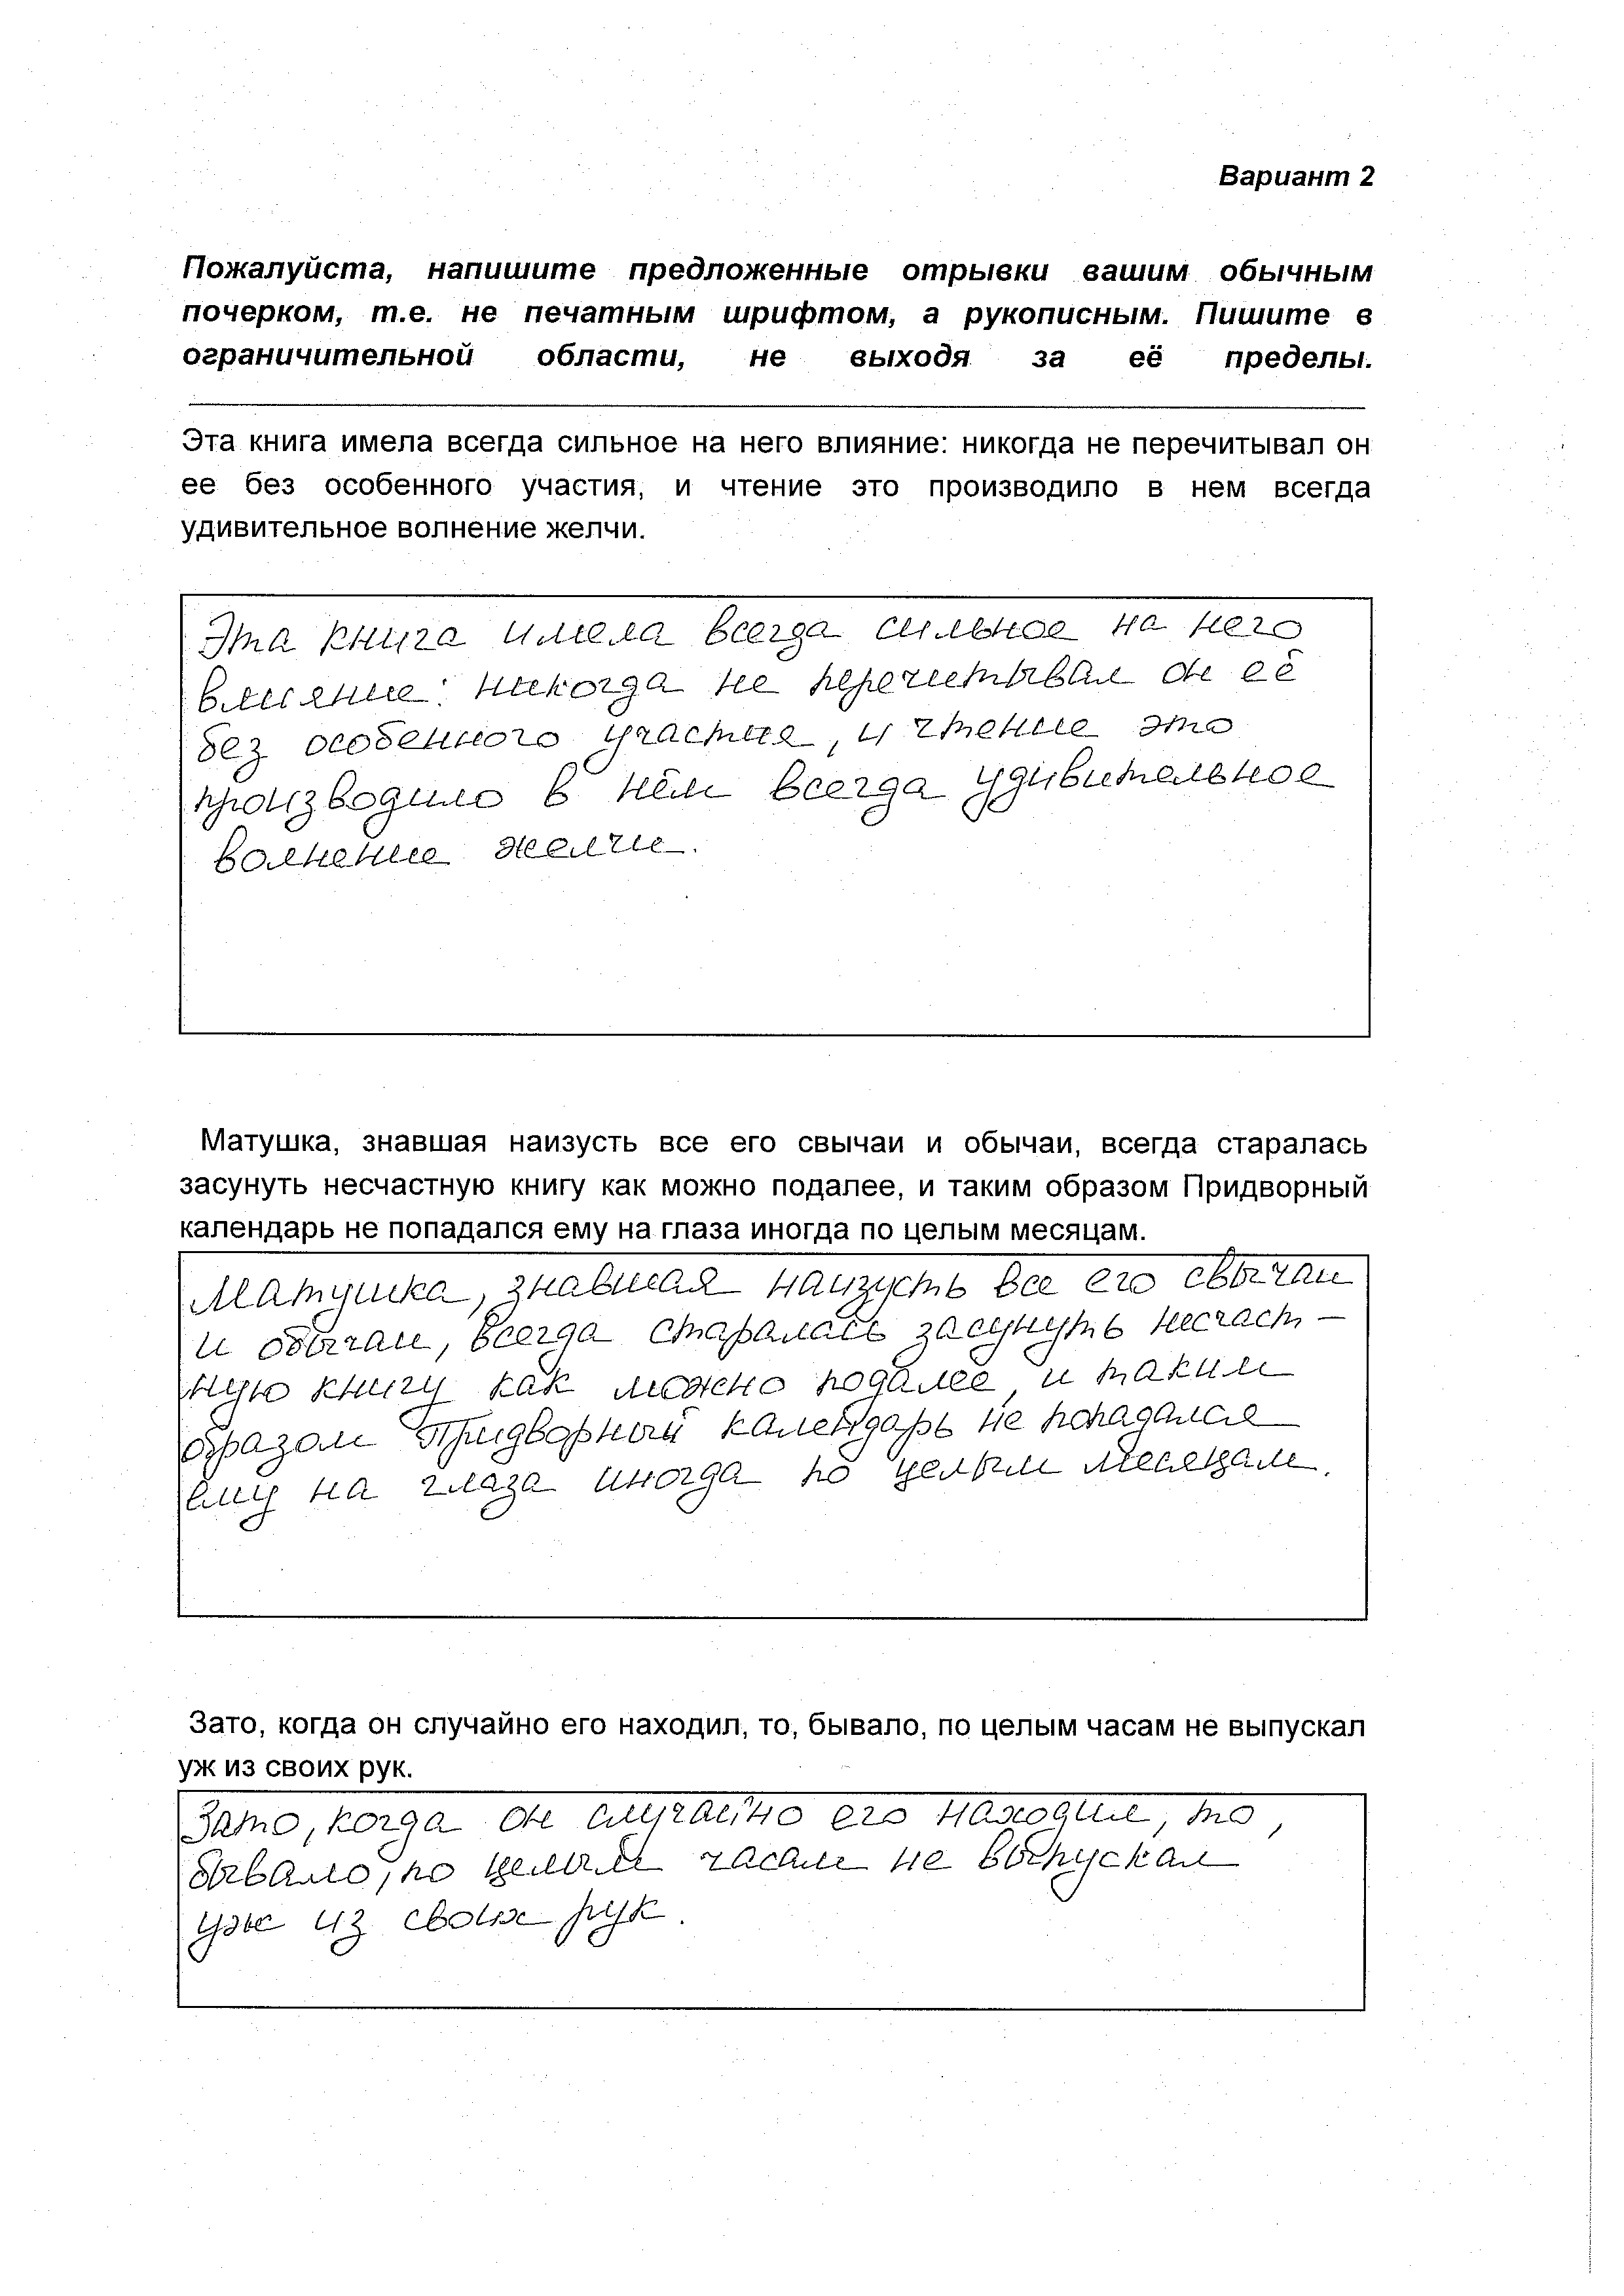 Вариант 2
Пожалуйста, напишите предложенные отрывки вашим обычным
почерком, т.е. не печатным шрифтом, а рукописным. Пишите в
ограничительной области, не выходя за её пределы.
Эта книга имела всегда сильное на него влияние: никогда не перечитывал он
ее без особенного участия, и чтение это производило в нем всегда
удивительное волнение желчи.
Эта книга имела всегда сильное на него
влияние: никогда не перечитывал он её
без особенного участия, и чтение это
производило в нём всегда удивительное
волнение желчи.
Матушка, знавшая наизусть все его свычаи и обычаи, всегда старалась
засунуть несчастную книгу как можно подалее, и таким образом Придворный
календарь не попадался ему на глаза иногда по целым месяцам.
Матушка, знавшая наизусть все его свычаи
и обычаи, всегда старалась засунуть несчаст-
ную книгу как можно подалее, и таким
образом Придворный календарь не попадался
ему на глаза иногда по целым месяцам.
Зато, когда он случайно его находил, то, бывало, по целым часам не выпускал
уж из своих рук.
Зато, когда он случайно его находил, то,
бывало, по целым часам не выпускал
уж из своих рук.